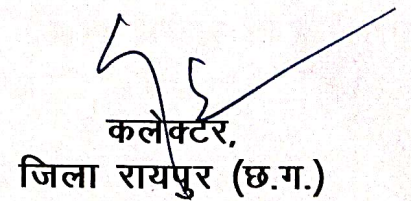 कलेक्टर,
जिला रायपुर (छ.ग.)